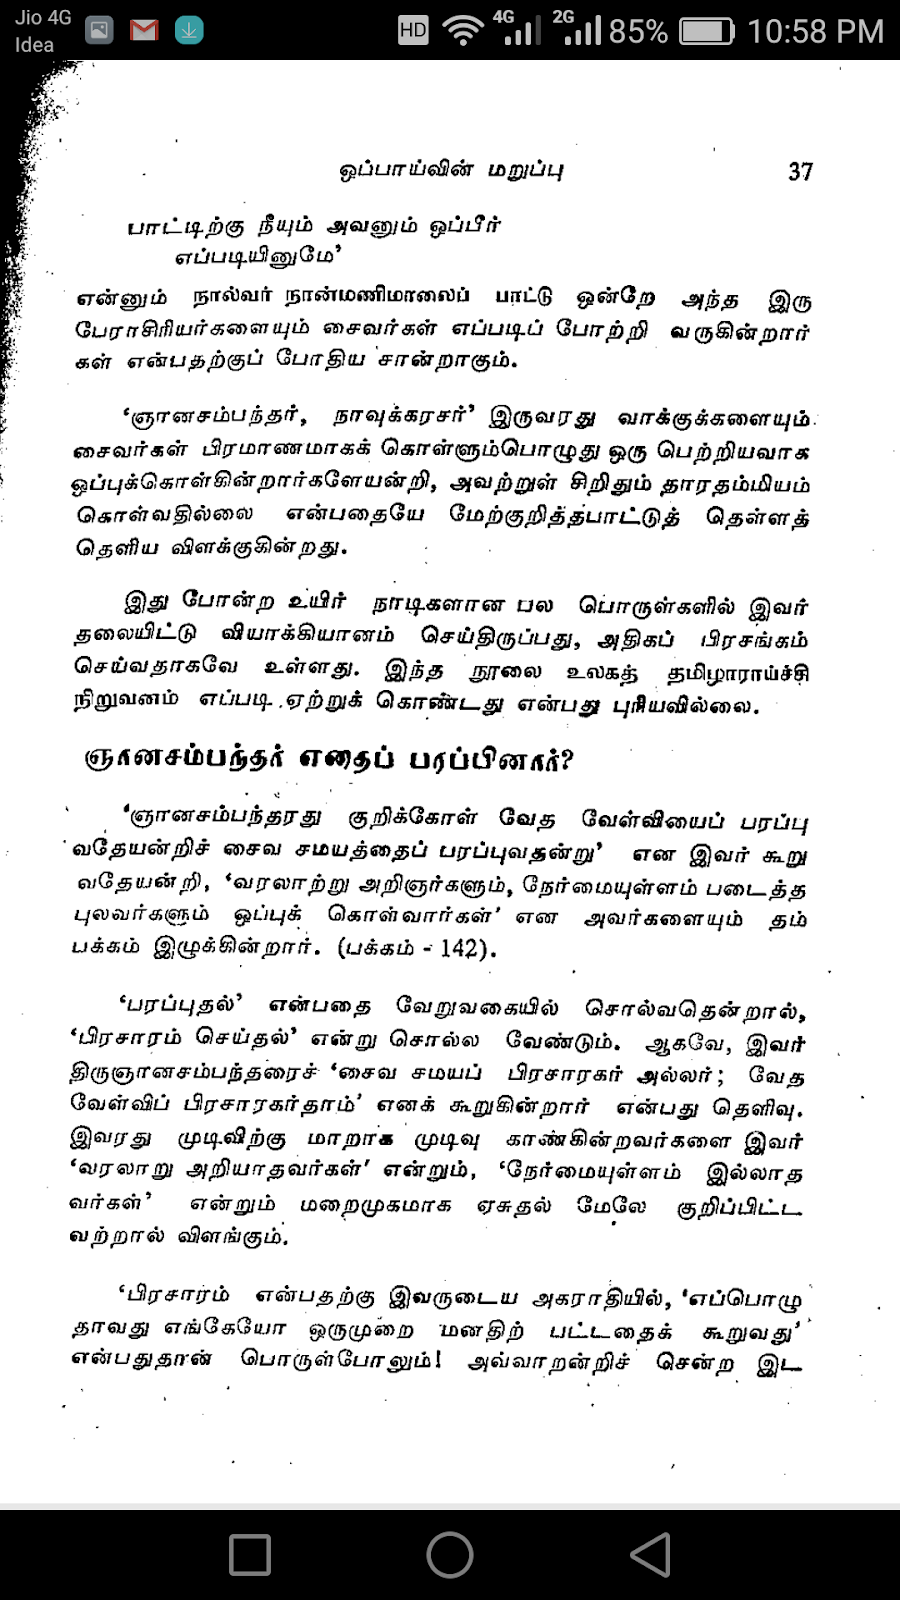 Jio 4G
Idea
HD 4G 2G 85% 10:58 PM
ஒப்பாய்வின் மறுப்பு 37
பாட்டிற்கு நீயும் அவனும் ஒப்பீர்
எப்படியினுமே’
என்னும் நால்வர் நான்மணிமாலைப் பாட்டு ஒன்றே அந்த இரு
பேராசிரியர்களையும் சைவர்கள் எப்படிப் போற்றி வருகின்றார்
கள் என்பதற்குப் போதிய சான்றாகும்.
‘ஞானசம்பந்தர், நாவுக்கரசர்’ இருவரது வாக்குக்களையும்
சைவர்கள் பிரமாணமாகக் கொள்ளும்பொழுது ஒரு பெற்றியவாக
ஒப்புக்கொள்கின்றார்களேயன்றி, அவற்றுள் சிறிதும் தாரதம்மியம்
கொள்வதில்லை என்பதையே மேற்குறித்தபாட்டுத் தெள்ளத்
தெளிய விளக்குகின்றது.
இது போன்ற உயிர் நாடிகளான பல பொருள்களில் இவர்
தலையிட்டு வியாக்கியானம் செய்திருப்பது, அதிகப் பிரசங்கம்
செய்வதாகவே உள்ளது. இந்த நூலை உலகத் தமிழாராய்ச்சி
நிறுவனம் எப்படி ஏற்றுக் கொண்டது என்பது புரியவில்லை.
ஞானசம்பந்தர் எதைப் பரப்பினார்?
‘ஞானசம்பந்தரது குறிக்கோள் வேத வேள்வியைப் பரப்பு
வதேயன்றிச் சைவ சமயத்தைப் பரப்புவதன்று’ என இவர் கூறு
வதேயன்றி, ‘வரலாற்று அறிஞர்களும், நேர்மையுள்ளம் படைத்த
புலவர்களும் ஒப்புக் கொள்வார்கள்’ என அவர்களையும் தம்
பக்கம் இழுக்கின்றார். (பக்கம் - 142).
‘பரப்புதல்’ என்பதை வேறுவகையில் சொல்வதென்றால்,
‘பிரசாரம் செய்தல்’ என்று சொல்ல வேண்டும். ஆகவே, இவர்
திருஞானசம்பந்தரைச் ‘சைவ சமயப் பிரசாரகர் அல்லர்; வேத
வேள்விப் பிரசாரகர்தாம்’ எனக் கூறுகின்றார் என்பது தெளிவு.
இவரது முடிவிற்கு மாறாக முடிவு காண்கின்றவர்களை இவர்
‘வரலாறு அறியாதவர்கள்’ என்றும், ‘நேர்மையுள்ளம் இல்லாத
வர்கள்’ என்றும் மறைமுகமாக ஏசுதல் மேலே குறிப்பிட்ட
வற்றால் விளங்கும்.
‘பிரசாரம் என்பதற்கு இவருடைய அகராதியில், ‘எப்பொழு
தாவது எங்கேயோ ஒருமுறை மனதிற் பட்டதைக் கூறுவது’
என்பதுதான் பொருள்போலும்! அவ்வாறன்றிச் சென்ற இட